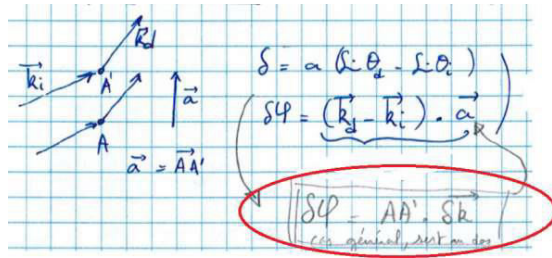 k⃗d
k⃗i
A'
A
a⃗
a⃗ = AA'⃗
δ = a (sin θd - sin θi)
δφ = (k⃗d - k⃗i) • a⃗
δφ = AA' • δk⃗
cas général, sert